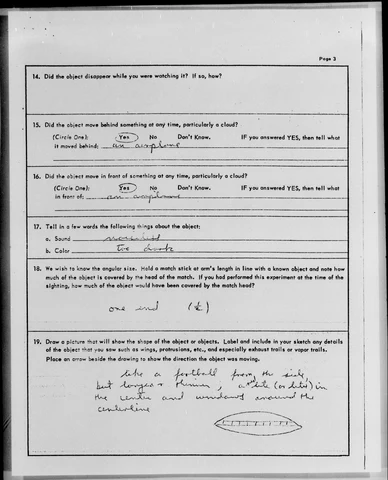 Page 3
14. Did the object disappear while you were watching it? If so, how?
15. Did the object move behind something at any time, particularly a cloud?
(Circle One): Yes No Don't Know. IF you answered YES, then tell what
it moved behind: an airplane
16. Did the object move in front of something at any time, particularly a cloud?
(Circle One): Yes No Don't Know. IF you answered YES, then tell what
in front of: an airplane
17. Tell in a few words the following things about the object:
a. Sound
b. Color too dark
18. We wish to know the angular size. Hold a match stick at arm's length in line with a known object and note how
much of the object is covered by the head of the match. If you had performed this experiment at the time of the
sighting, how much of the object would have been covered by the match head?
one end
19. Draw a picture that will show the shape of the object or objects. Label and include in your sketch any details
of the object that you saw such as wings, protrusions, etc., and especially exhaust trails or vapor trails.
Place an arrow beside the drawing to show the direction the object was moving.
like a football from the side,
but longer & thinner, (or lites) in
the center and windows around the
centerline